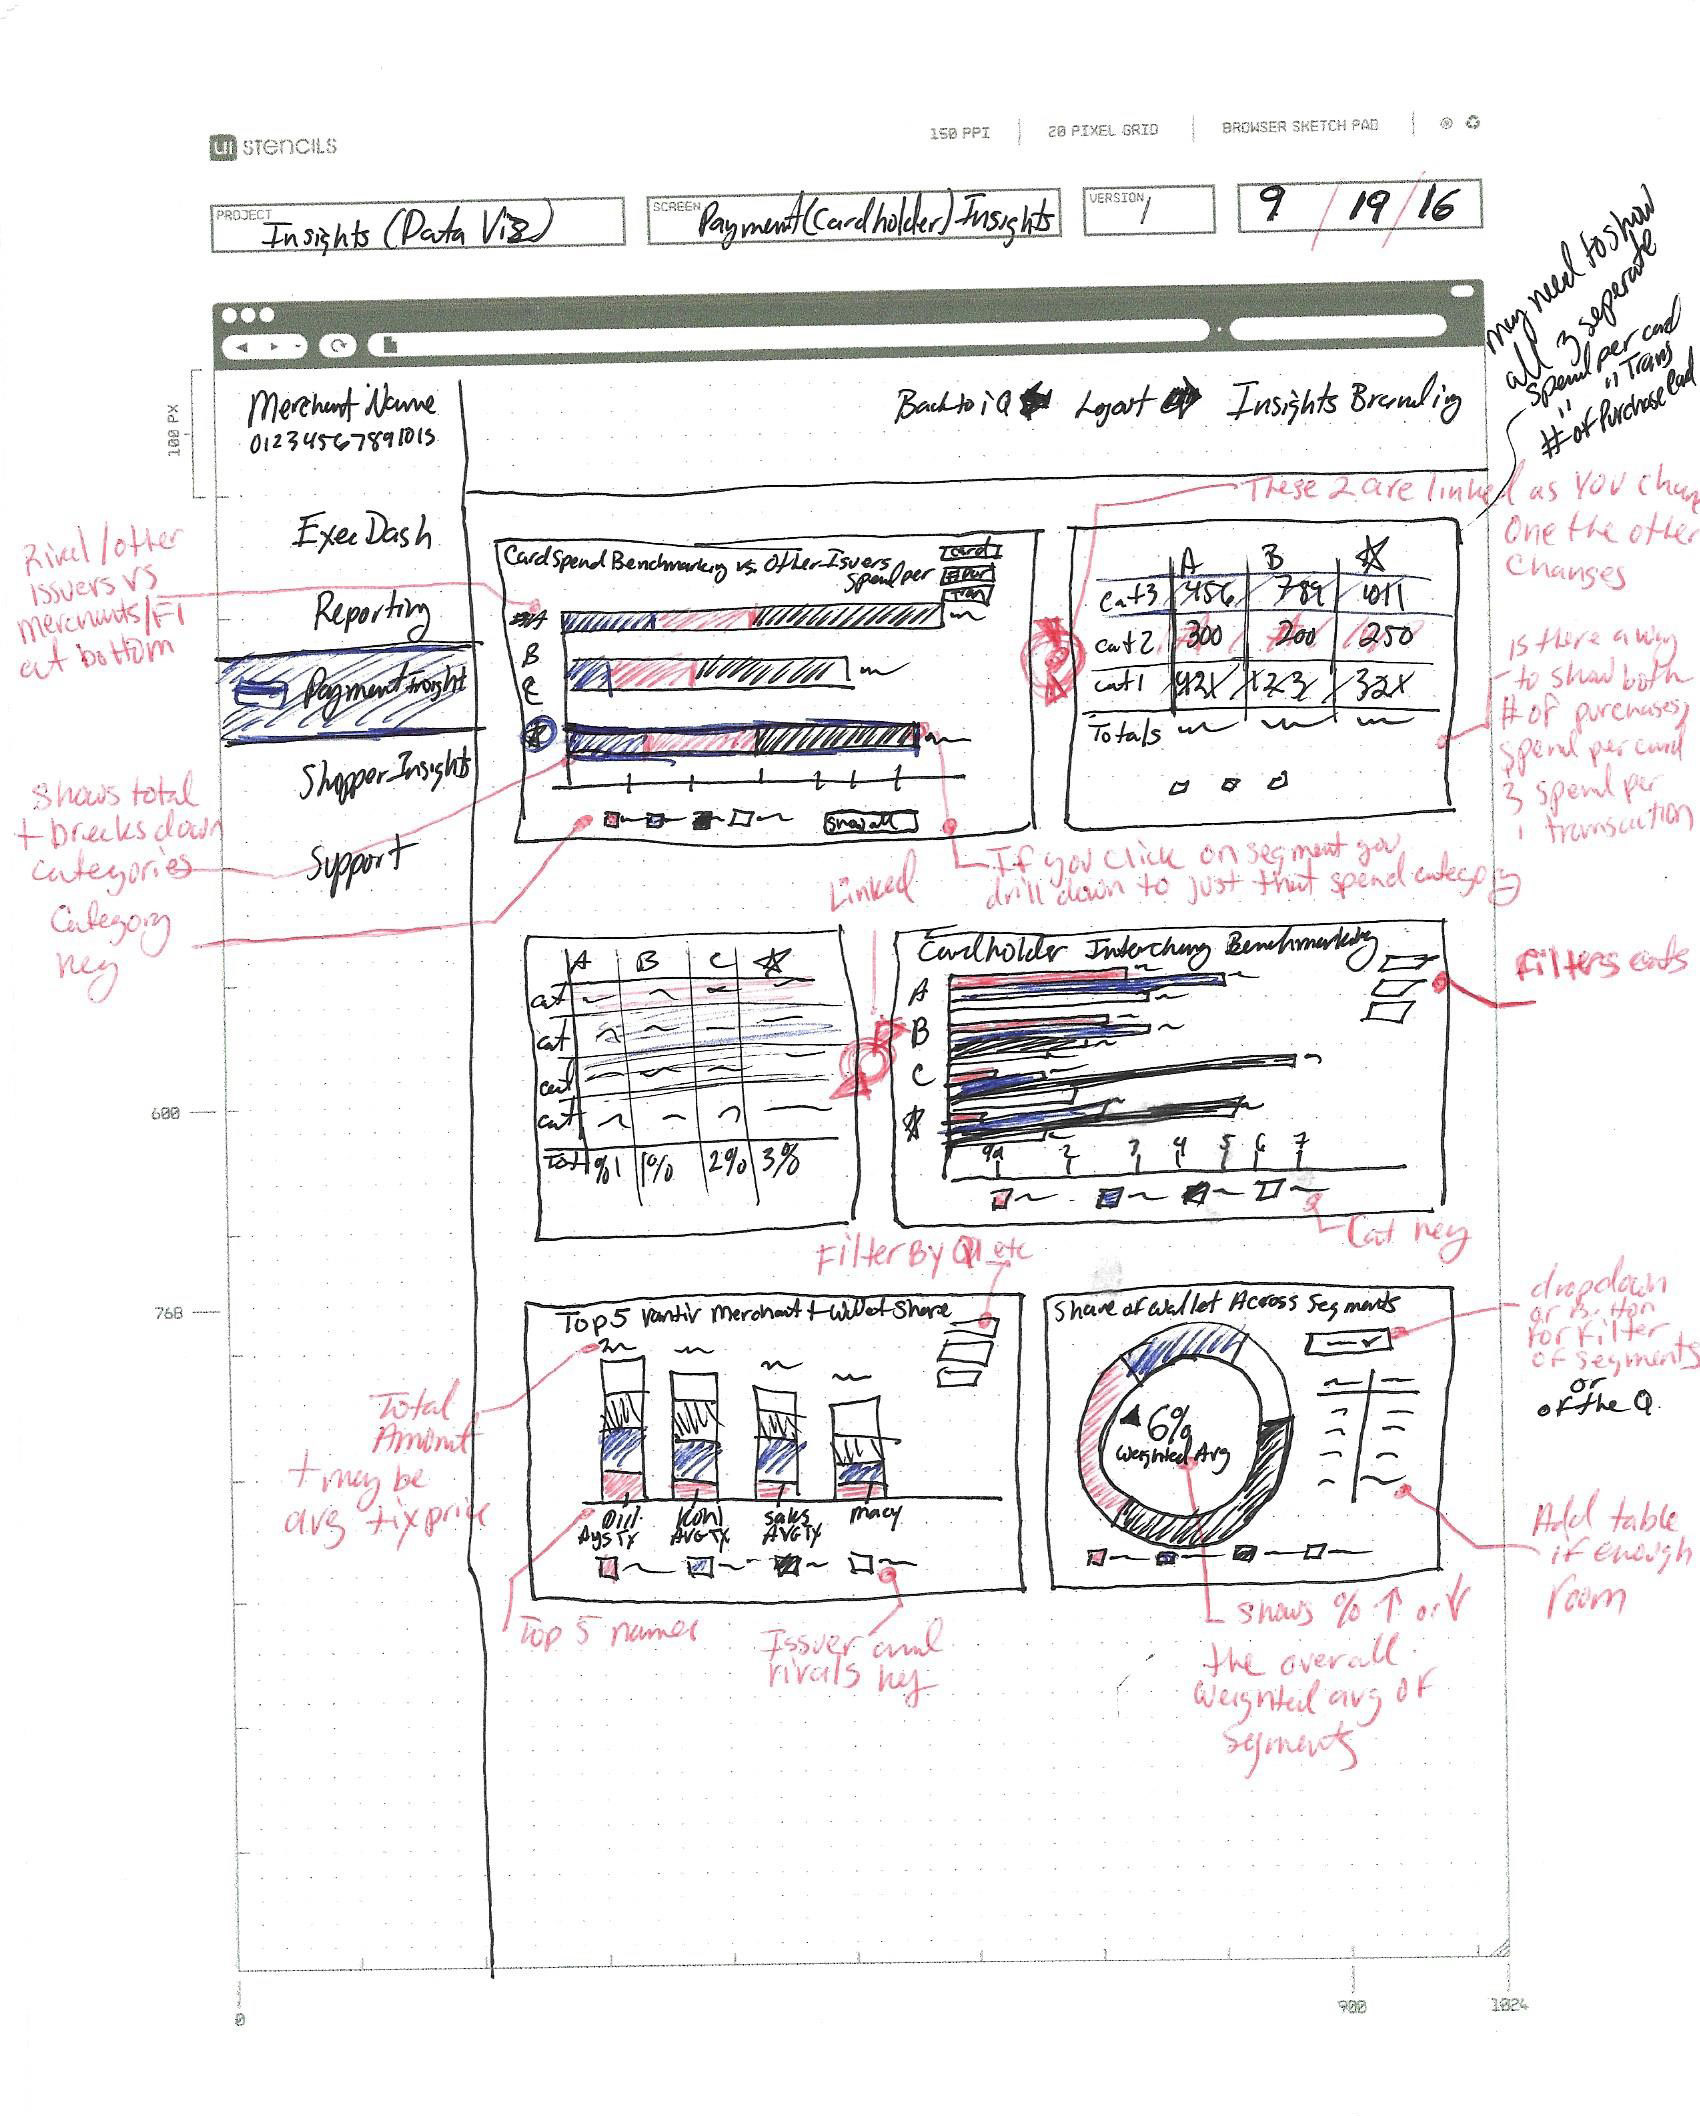 UI STENCILS
150 PPI
20 PIXEL GRID
BROWSER SKETCH PAD
PROJECT
Insights (Data Viz)
SCREEN
Payment (Cardholder) Insights
VERSION
1
9 / 19 / 16
May need to show
all 3 seperate
spend per card
" Trans
"
# of Purchase Card
100 PX
Merchant Name
Back to iQ
Logout
Insights Branding
Exec Dash
Reporting
Payment Insight
Shopper Insight
Support
Rival/other
issuers vs
merchants/FI
at bottom
Shows total
+ breaks down
categories
Category
key
Card Spend Benchmarking vs. Other Isuers
Spend per
Card
# Pur
Tran
A
B
C
Show all
These 2 are linked as you change
One the other
Changes
A B
Cat 3 456 789 1011
cat 2 300 200 250
cat 1 42X 123 32X
Totals
is there a way
to show both
# of purchases,
spend per card
& spend per
transaction
If you click on segment you
drill down to just that spend category
Linked
A B C
cat
cat
cat
cat
Tot %1 1% 2% 3%
Cardholder Interchang Benchmarking
A
B
C
2 3 4 5 6 7
Filters cats
Cat key
Filter By Q1 etc
600
768
Top 5 Vantiv Merchant + Wallet Share
Total
Amount
+ may be
avg tix price
Dill Kohl Saks Macy
Avg Tx AVG TX AVG TX
Top 5 names
Issuer and
rivals key
Share of Wallet Across Segments
6%
Weighted Avg
dropdown
or Button
for filter
of segments
or
of the Q
Add table
if enough
room
Shows % ↑ or ↓
the overall
weighted avg of
segments
0
900
1024